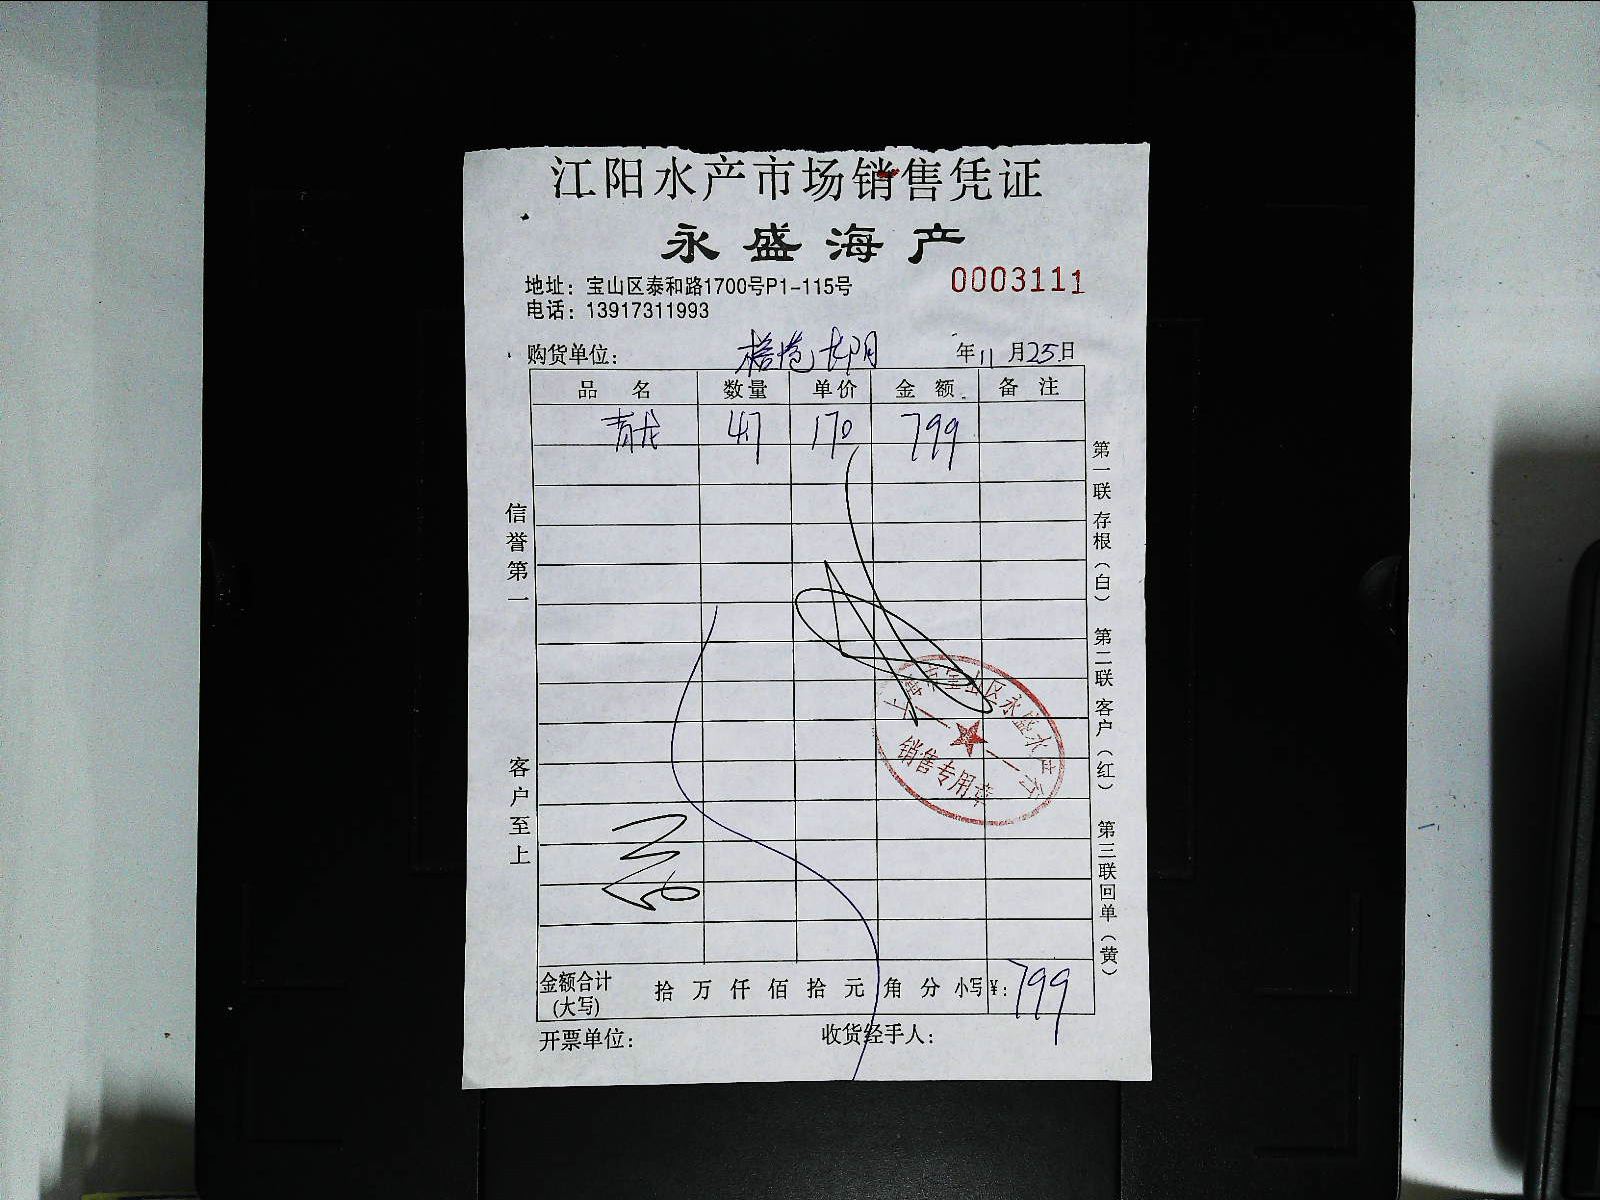 江阳水产市场销售凭证
永盛海产
0003111
地址：宝山区泰和路1700号P1-115号
电话：13917311993
购货单位： 年11月25日
品名 数量 单价 金额 备注
青龙 4.7 170 799
信誉第一
客户至上
第一联存根（白） 第二联客户（红） 第三联回单（黄）
上海市宝山区永盛水产行
销售专用章
金额合计(大写) 拾 万 仟 佰 拾 元 角 分 小写￥：799
开票单位： 收货经手人：